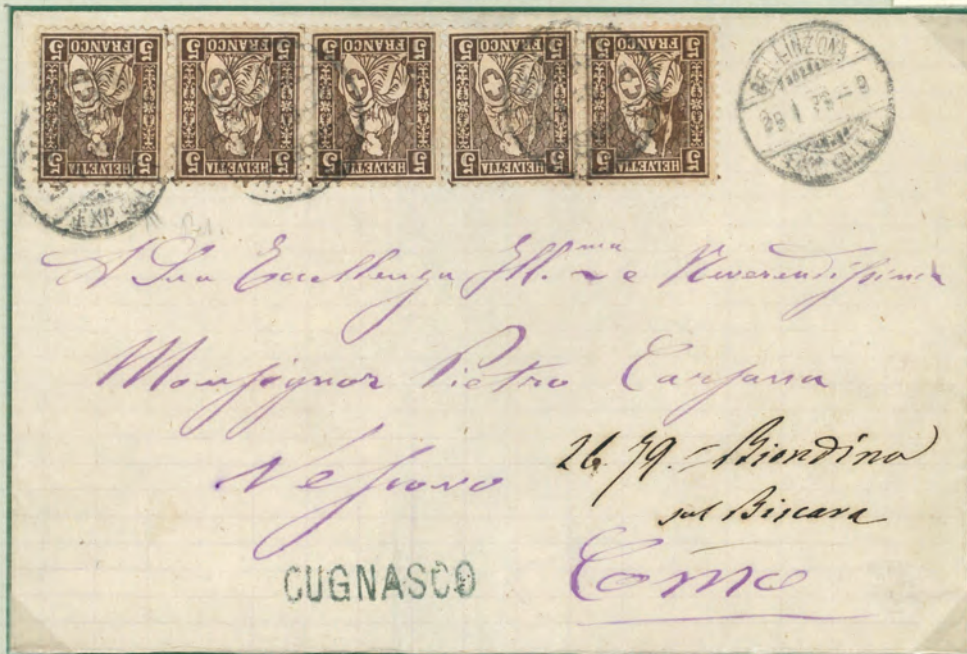 5 FRANCO 5
5 HELVETIA 5
5 FRANCO 5
5 HELVETIA 5
5 FRANCO 5
5 HELVETIA 5
5 FRANCO 5
5 HELVETIA 5
5 FRANCO 5
5 HELVETIA 5
BELLINZONA
EXP.
A Sua Eccellenza Ill.ma e Reverendissima
Monsignor Pietro Carsana
Vescovo
26.79. - Biondino
sul Biscara
CUGNASCO
Como